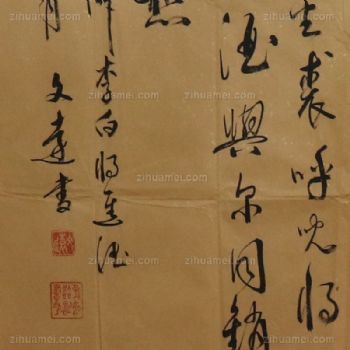 裘呼兒將
酒與尔同銷
李白將進酒
文達書
zihuamei.com
zihuamei.com
zihuamei.com
zihuamei.com
zihuamei.com
zihuamei.com
zihuamei.com
zihuamei.com